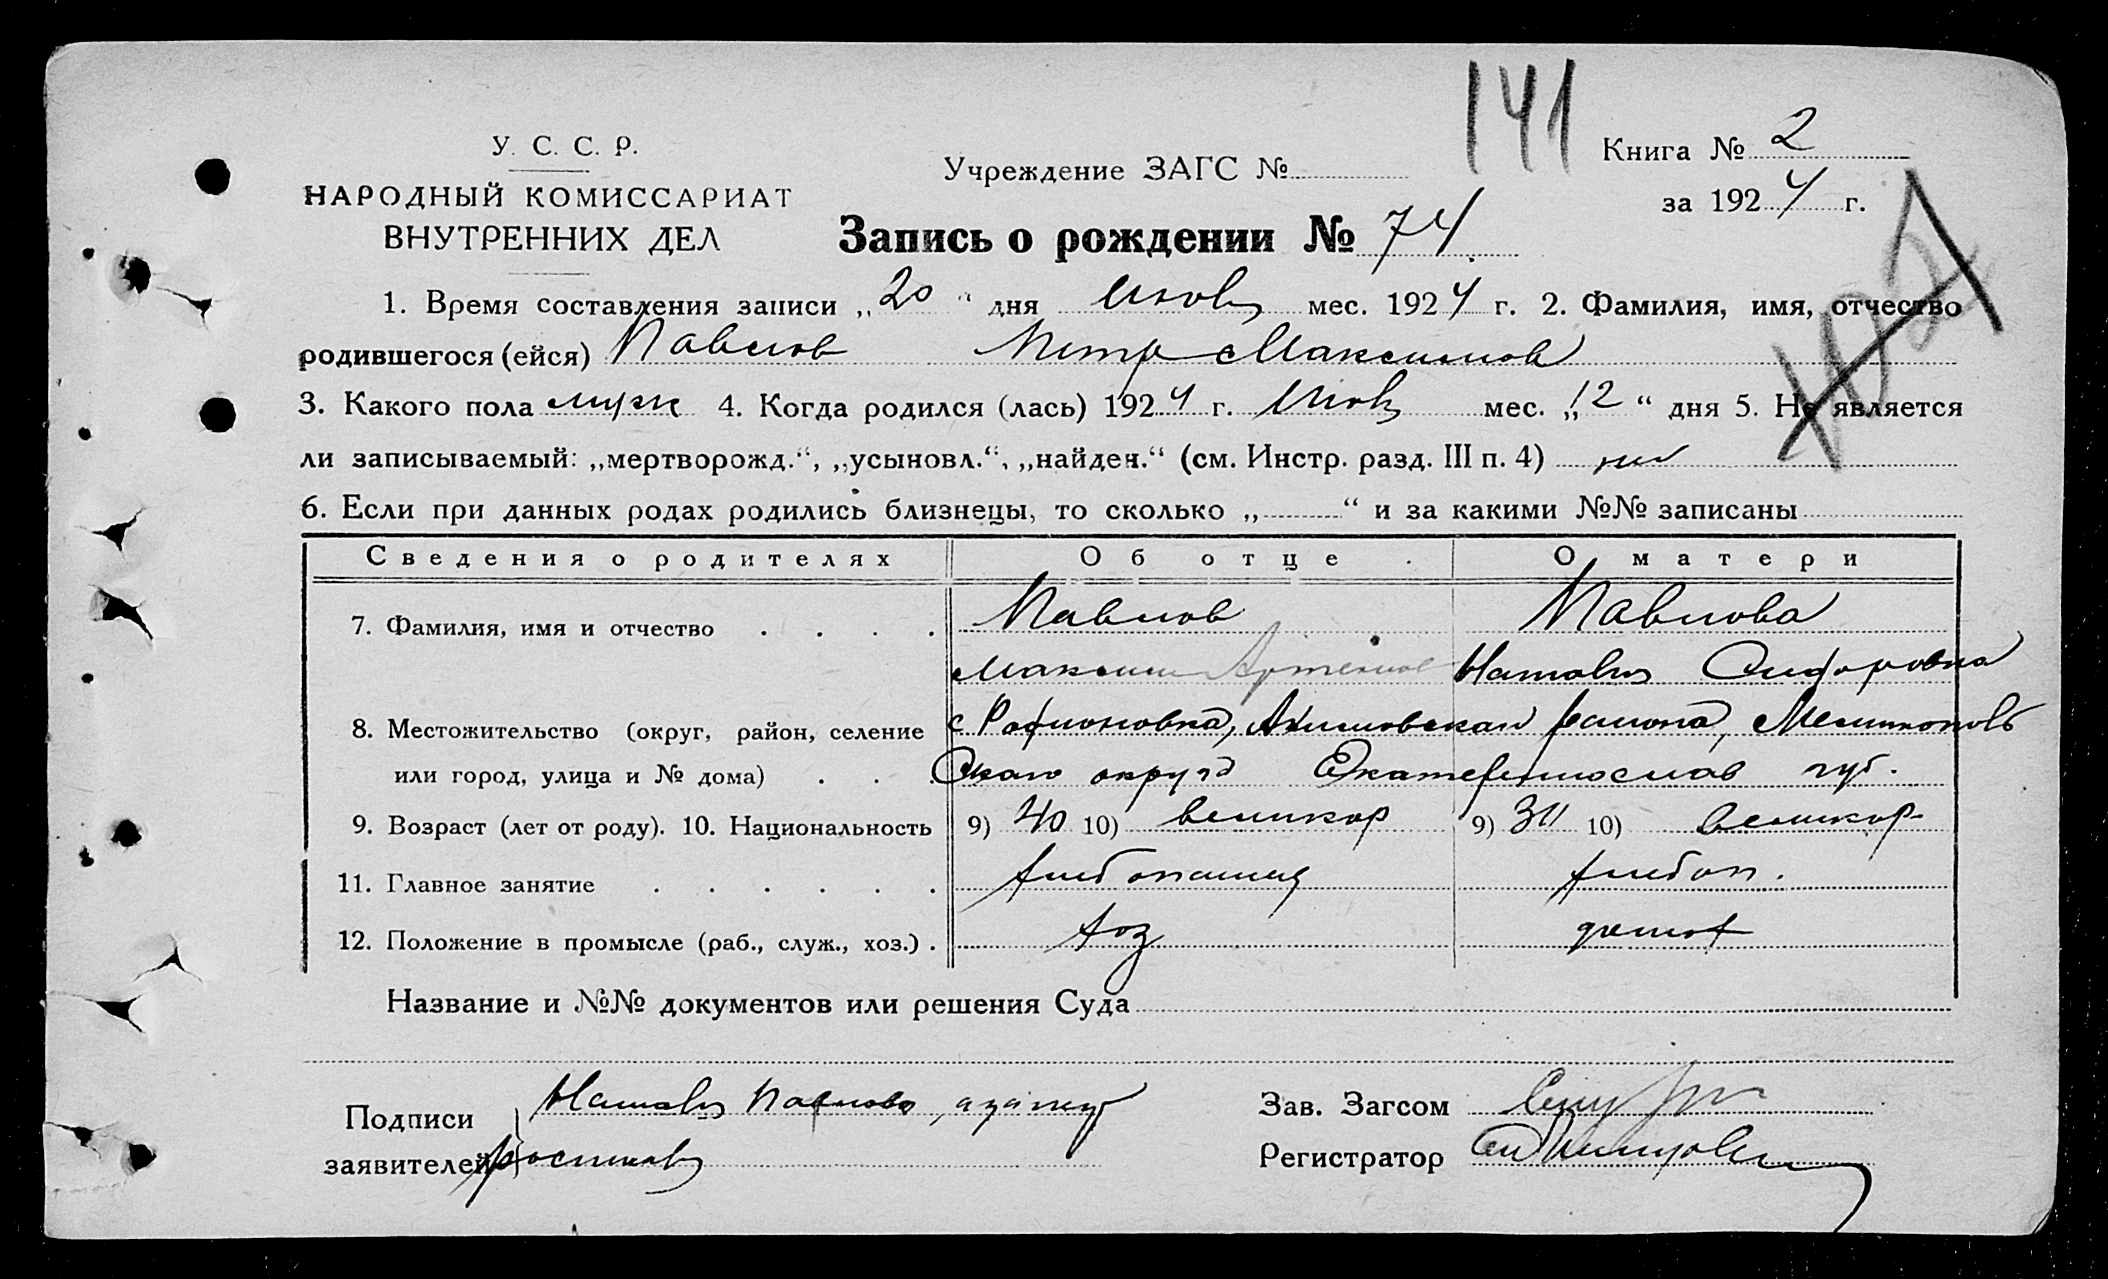 141
У. С. С. Р.
НАРОДНЫЙ КОМИССАРИАТ
ВНУТРЕННИХ ДЕЛ
Учреждение ЗАГС №
Книга № 2
за 1924 г.
Запись о рождении № 74
1. Время составления записи „20“ дня Июля мес. 1924 г. 2. Фамилия, имя, отчество
родившегося (ейся) Павлов Петр Максимов
3. Какого пола муж 4. Когда родился (лась) 1924 г. Июля мес. „12“ дня 5. Не является
ли записываемый: „мертворожд.“, „усыновл.“, „найден.“ (см. Инстр. разд. III п. 4) нет
6. Если при данных родах родились близнецы, то сколько „ “ и за какими №№ записаны
Сведения о родителях Об отце О матери
7. Фамилия, имя и отчество Павлов Павлова
Максим Артемов Наталия Сидоровна
8. Местожительство (округ, район, селение с Родионовка, Акимовская района, Мелитополь
или город, улица и № дома) Скаго округа Екатеринослав губ.
9. Возраст (лет от роду). 10. Национальность 9) 40 10) великор 9) 34 10) великор
11. Главное занятие хлебопашец хлебоп.
12. Положение в промысле (раб., служ., хоз.) хоз домох
Название и №№ документов или решения Суда
Подписи Наталия Павлова,
заявителей
Зав. Загсом
Регистратор